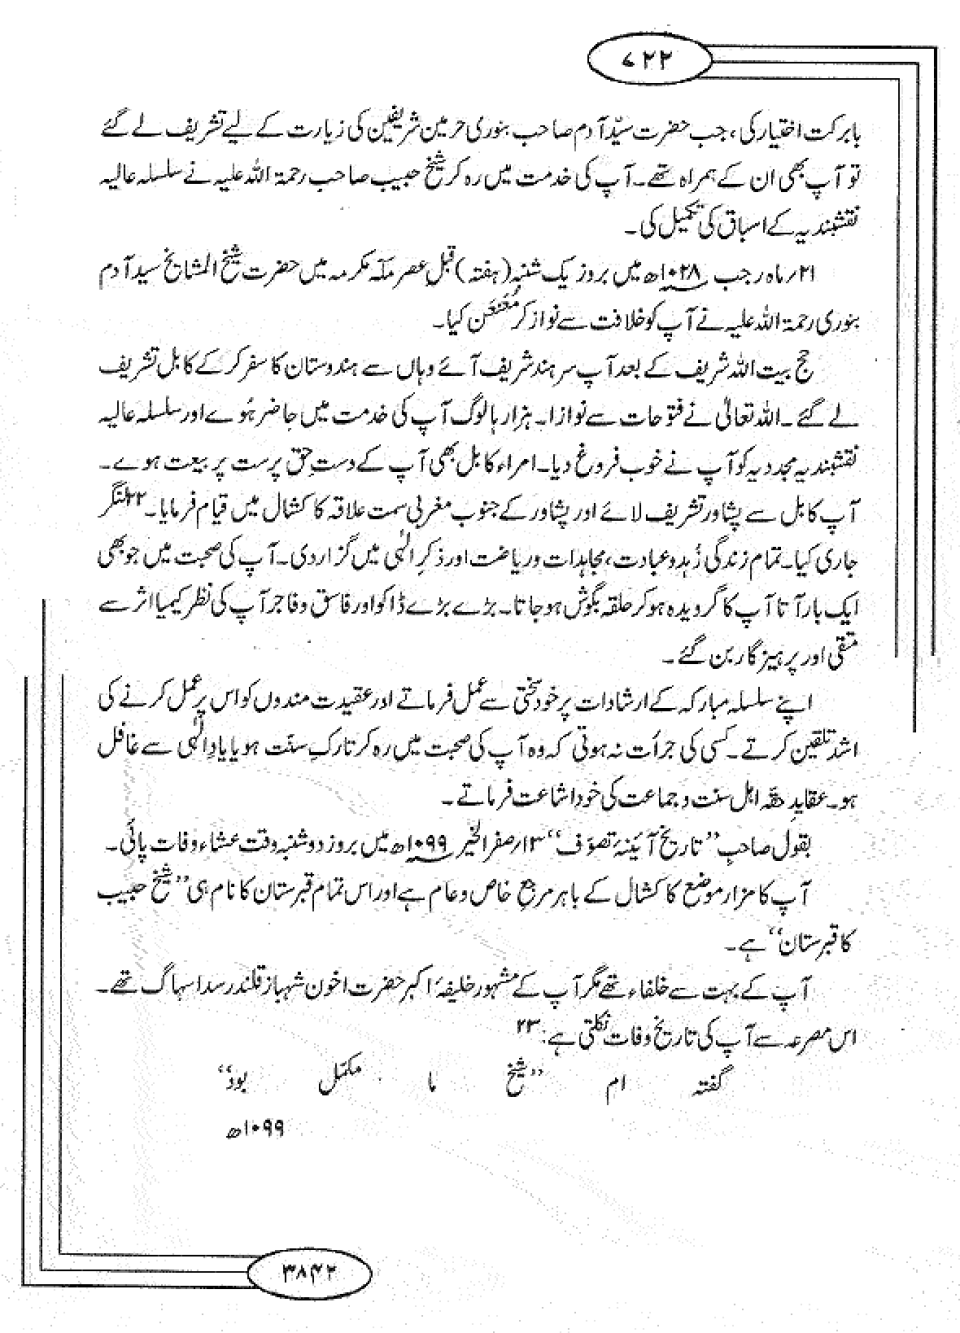 ۷۲۲
بابرکت اختیار کی، جب حضرت سیّد آدم صاحب بنوری حرمین شریفین کی زیارت کے لیے تشریف لے گئے
تو آپ بھی ان کے ہمراہ تھے۔ آپ کی خدمت میں رہ کر شیخ حبیب صاحب رحمۃ اللہ علیہ نے سلسلہ عالیہ
نقشبندیہ کے اسباق کی تکمیل کی۔
۲۱/ ماہ رجب ۱۰۲۸ھ میں بروز یک شنبہ (ہفتہ) قبل عصر مکّہ مکرمہ میں حضرت شیخ المشایخ سید آدم
بنوری رحمۃ اللہ علیہ نے آپ کو خلافت سے نواز کر مُعَنعَن کیا۔
حج بیت اللہ شریف کے بعد آپ سرہند شریف آئے وہاں سے ہندوستان کا سفر کر کے کابل تشریف
لے گئے۔ اللہ تعالیٰ نے فتوحات سے نوازا۔ ہزارہا لوگ آپ کی خدمت میں حاضر ہُوے اور سلسلہ عالیہ
نقشبندیہ مجددیہ کو آپ نے خوب فروغ دیا۔ امراء کابل بھی آپ کے دستِ حق پرست پر بیعت ہوے۔
آپ کابل سے پشاور تشریف لائے اور پشاور کے جنوب مغربی سمت علاقہ کاکشال میں قیام فرمایا۔۲۲ لنگر
جاری کیا۔ تمام زندگی زُہد و عبادت، مجاہدات و ریاضت اور ذکرِ الٰہی میں گزار دی۔ آپ کی صحبت میں جو بھی
ایک بار آتا آپ کا گرویدہ ہو کر حلقہ بگوش ہو جاتا۔ بڑے بڑے ڈاکو اور فاسق و فاجر آپ کی نظر کیمیا اثر سے
متقی اور پرہیز گار بن گئے۔
اپنے سلسلہ مبارکہ کے ارشادات پر خود سختی سے عمل فرماتے اور عقیدت مندوں کو اس پر عمل کرنے کی
اشد تلقین کرتے۔ کسی کی جرأت نہ ہوتی کہ وہ آپ کی صحبت میں رہ کر تارکِ سنّت ہو یا یادِ الٰہی سے غافل
ہو۔ عقایدِ حقّہ اہل سنت و جماعت کی خود اشاعت فرماتے۔
بقول صاحبِ ”تاریخ آئینۂ تصوّف“ ۱۳/ صفر الخیر ۱۰۹۹ھ میں بروز دو شنبہ وقت عشاء وفات پائی۔
آپ کا مزار موضع کاکشال کے باہر مرجع خاص و عام ہے اور اس تمام قبرستان کا نام ہی ”شیخ حبیب
کا قبرستان“ ہے۔
آپ کے بہت سے خلفاء تھے مگر آپ کے مشہور خلیفۂ اکبر حضرت اخون شہباز قلندر سدا سہاگ تھے۔
اس مصرعہ سے آپ کی تاریخ وفات نکلتی ہے:۲۳
گفتہ ام ”شیخ ما مکمّل بود“
۱۰۹۹ھ
۳۸۴۲